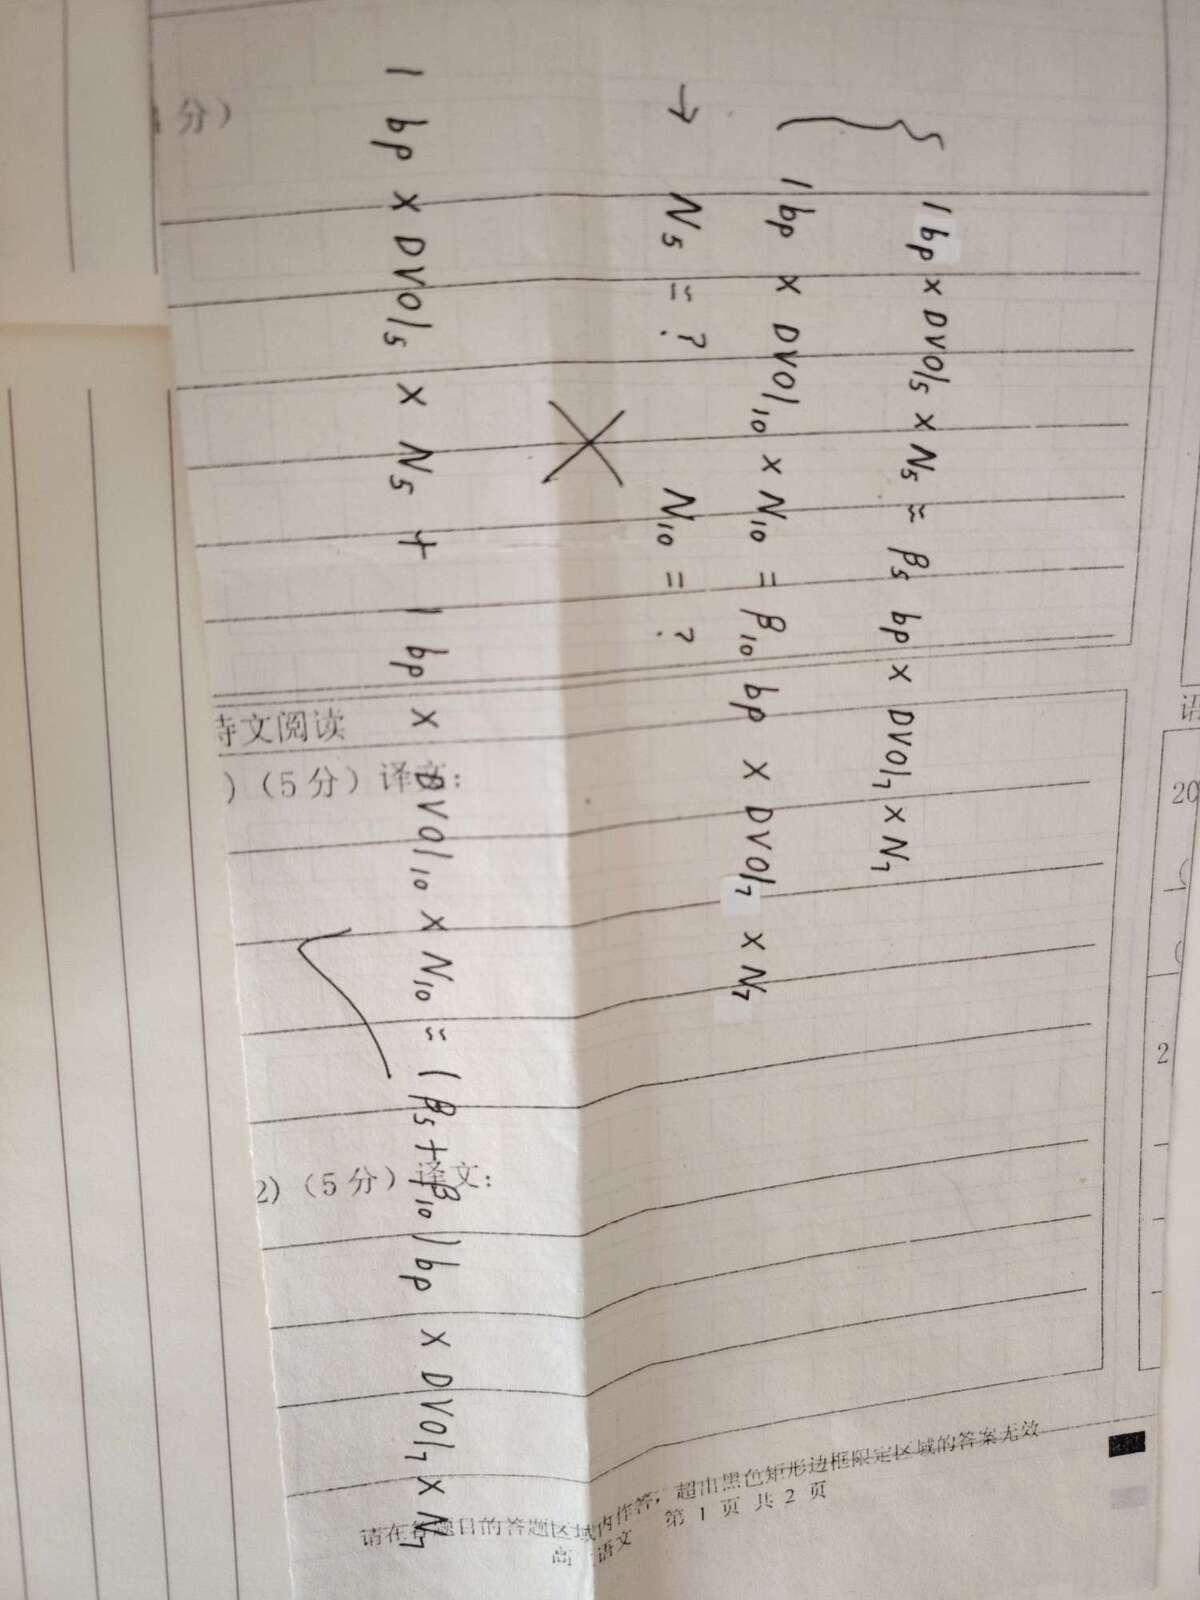 1 bp × DVOl₅ × N₅ = β₅ bp × DVOl₇ × N₇
1 bp × DVOl₁₀ × N₁₀ = β₁₀ bp × DVOl₇ × N₇
→ N₅ = ? N₁₀ = ?
1 bp × DVOl₅ × N₅ + 1 bp × DVOl₁₀ × N₁₀ = (β₅+β₁₀) bp × DVOl₇ × N₇
分）
诗文阅读
)（5分）译文：
2)（5分）译文：
请在各题目的答题区域内作答，超出黑色矩形边框限定区域的答案无效
语文 第 1 页 共 2 页
语
20
2